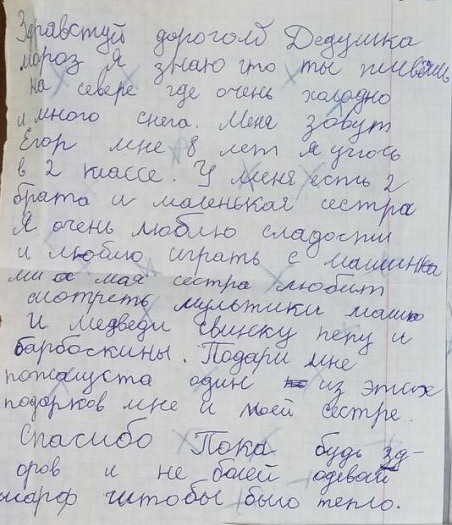 Здравствуй дорогой Дедушка
мороз Я знаю что ты живёшь
на севере где очень холодно
и много снега. Меня зовут
Егор мне 8 лет я учюсь
в 2 классе. У меня есть 2
брата и маленькая сестра
Я очень люблю сладости
и люблю играть с машинка
ми а мая сестра любит
смотреть мультики маша
И медведи свинку пепу и
барбоскины. Подари мне
пожалуста один из этих
подарков мне и моей сестре.
Спасибо Пока будь зд-
оров и не болей одевай
шарф чтобы было тепло.